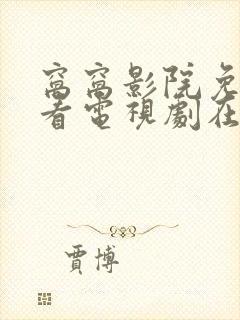 窩窩影院免
看電視劇在
賈博